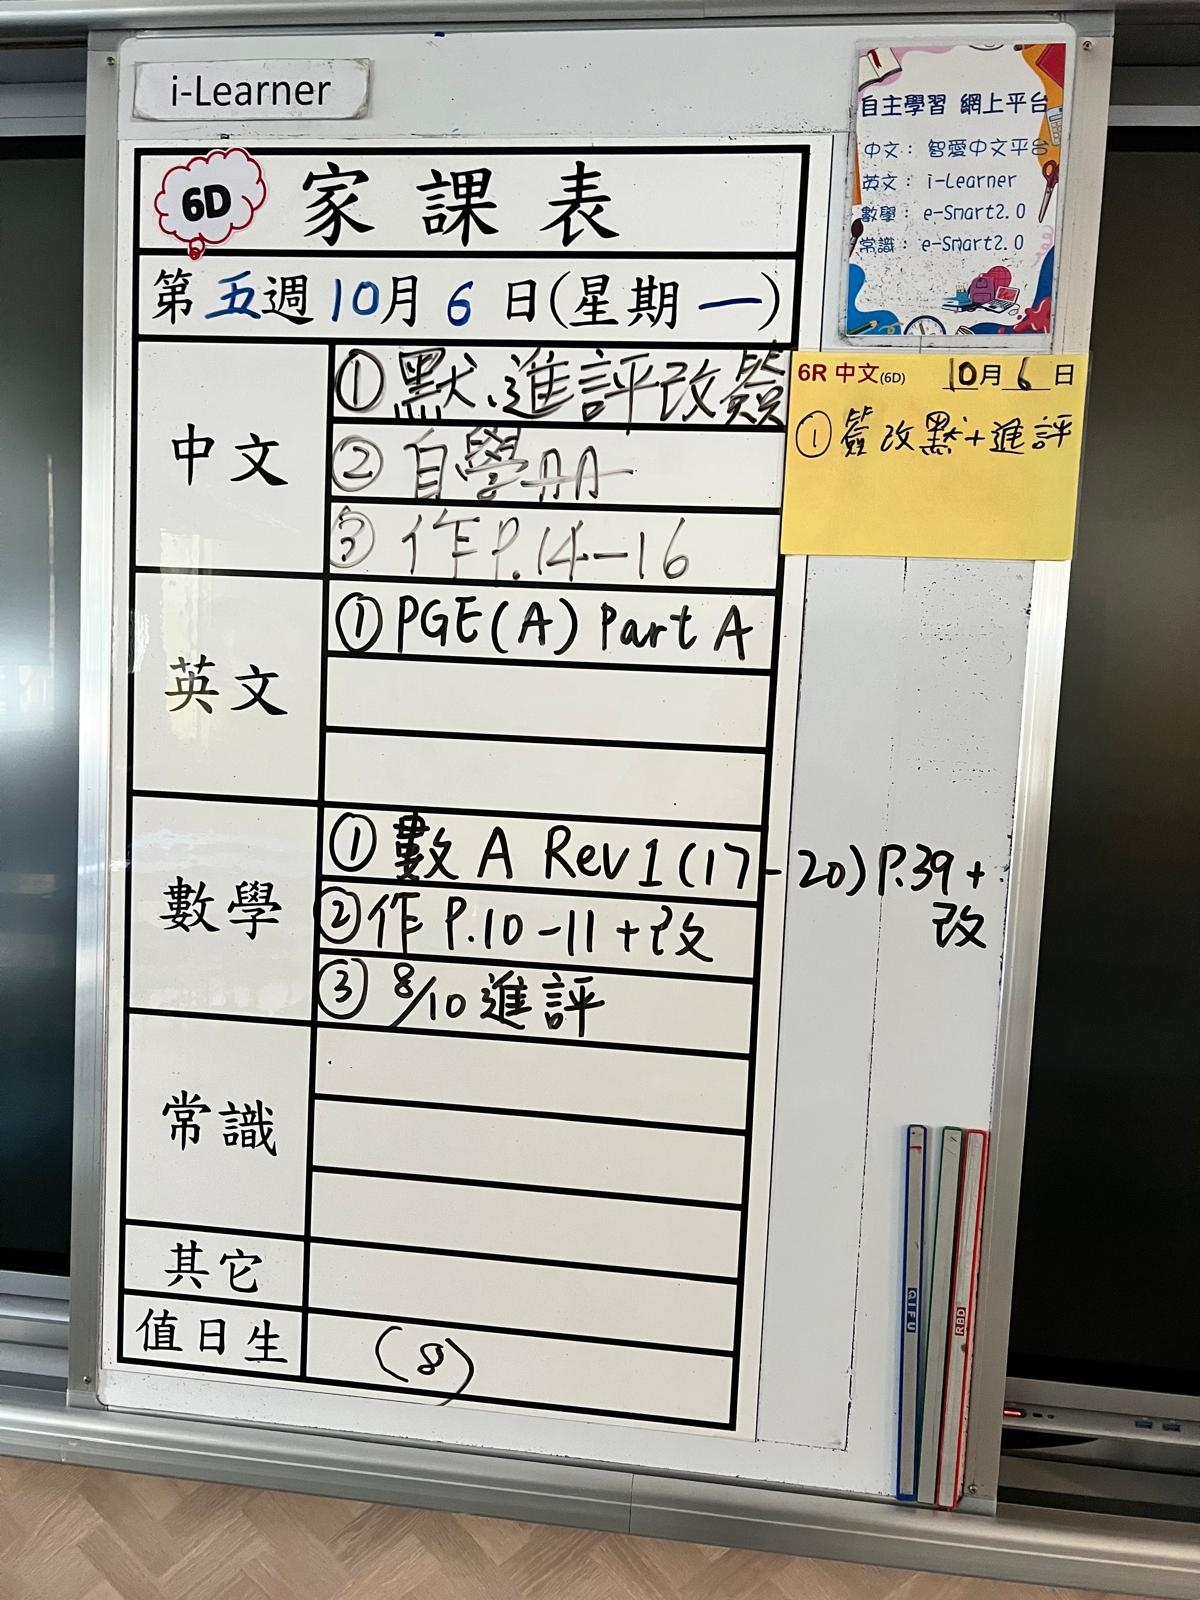 i-Learner
自主學習 網上平台
中文： 智愛中文平台
英文： i-Learner
數學： e-Smart2.0
常識： e-Smart2.0
6D 家課表
第五週10月6日(星期一)
中文
①默、進評改簽
②自學冊
③作P.14-16
6R 中文(6D) 10月6日
①簽改默+進評
英文
①PGE(A) Part A
數學
①數A Rev1(17-20)P.39+
改
②作P.10-11+改
③8/10進評
常識
其它
值日生
(8)
QIFU
RBD